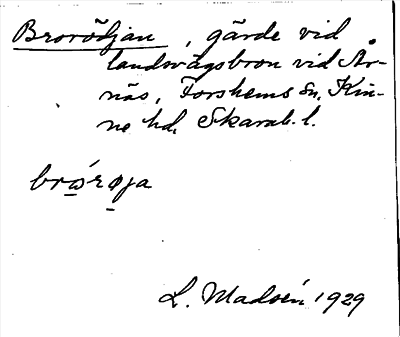 Broröjdjan, gärde vid
landsvägsbron vid År-
näs, Forshems sn, Kin-
ne hd, Skarab. l.
brώrøja
L. Madsén 1929